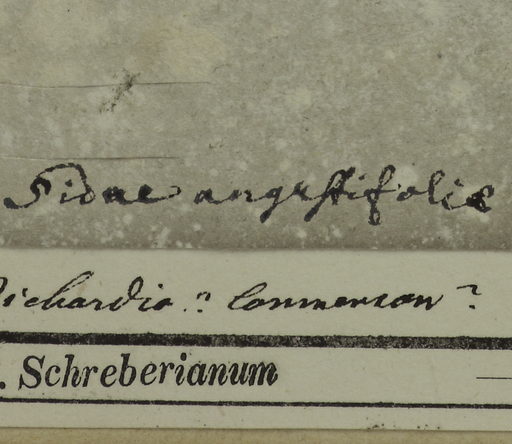 Sidae angustifoliae
Richardio? Commerson?
. Schreberianum